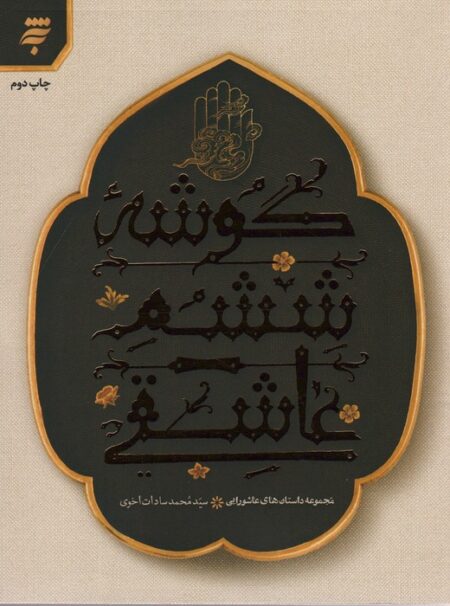 چاپ دوم
گوشهٔ
ششم
عاشقی
مجموعه داستان‌های عاشورایی سیّد محمد سادات اخوی